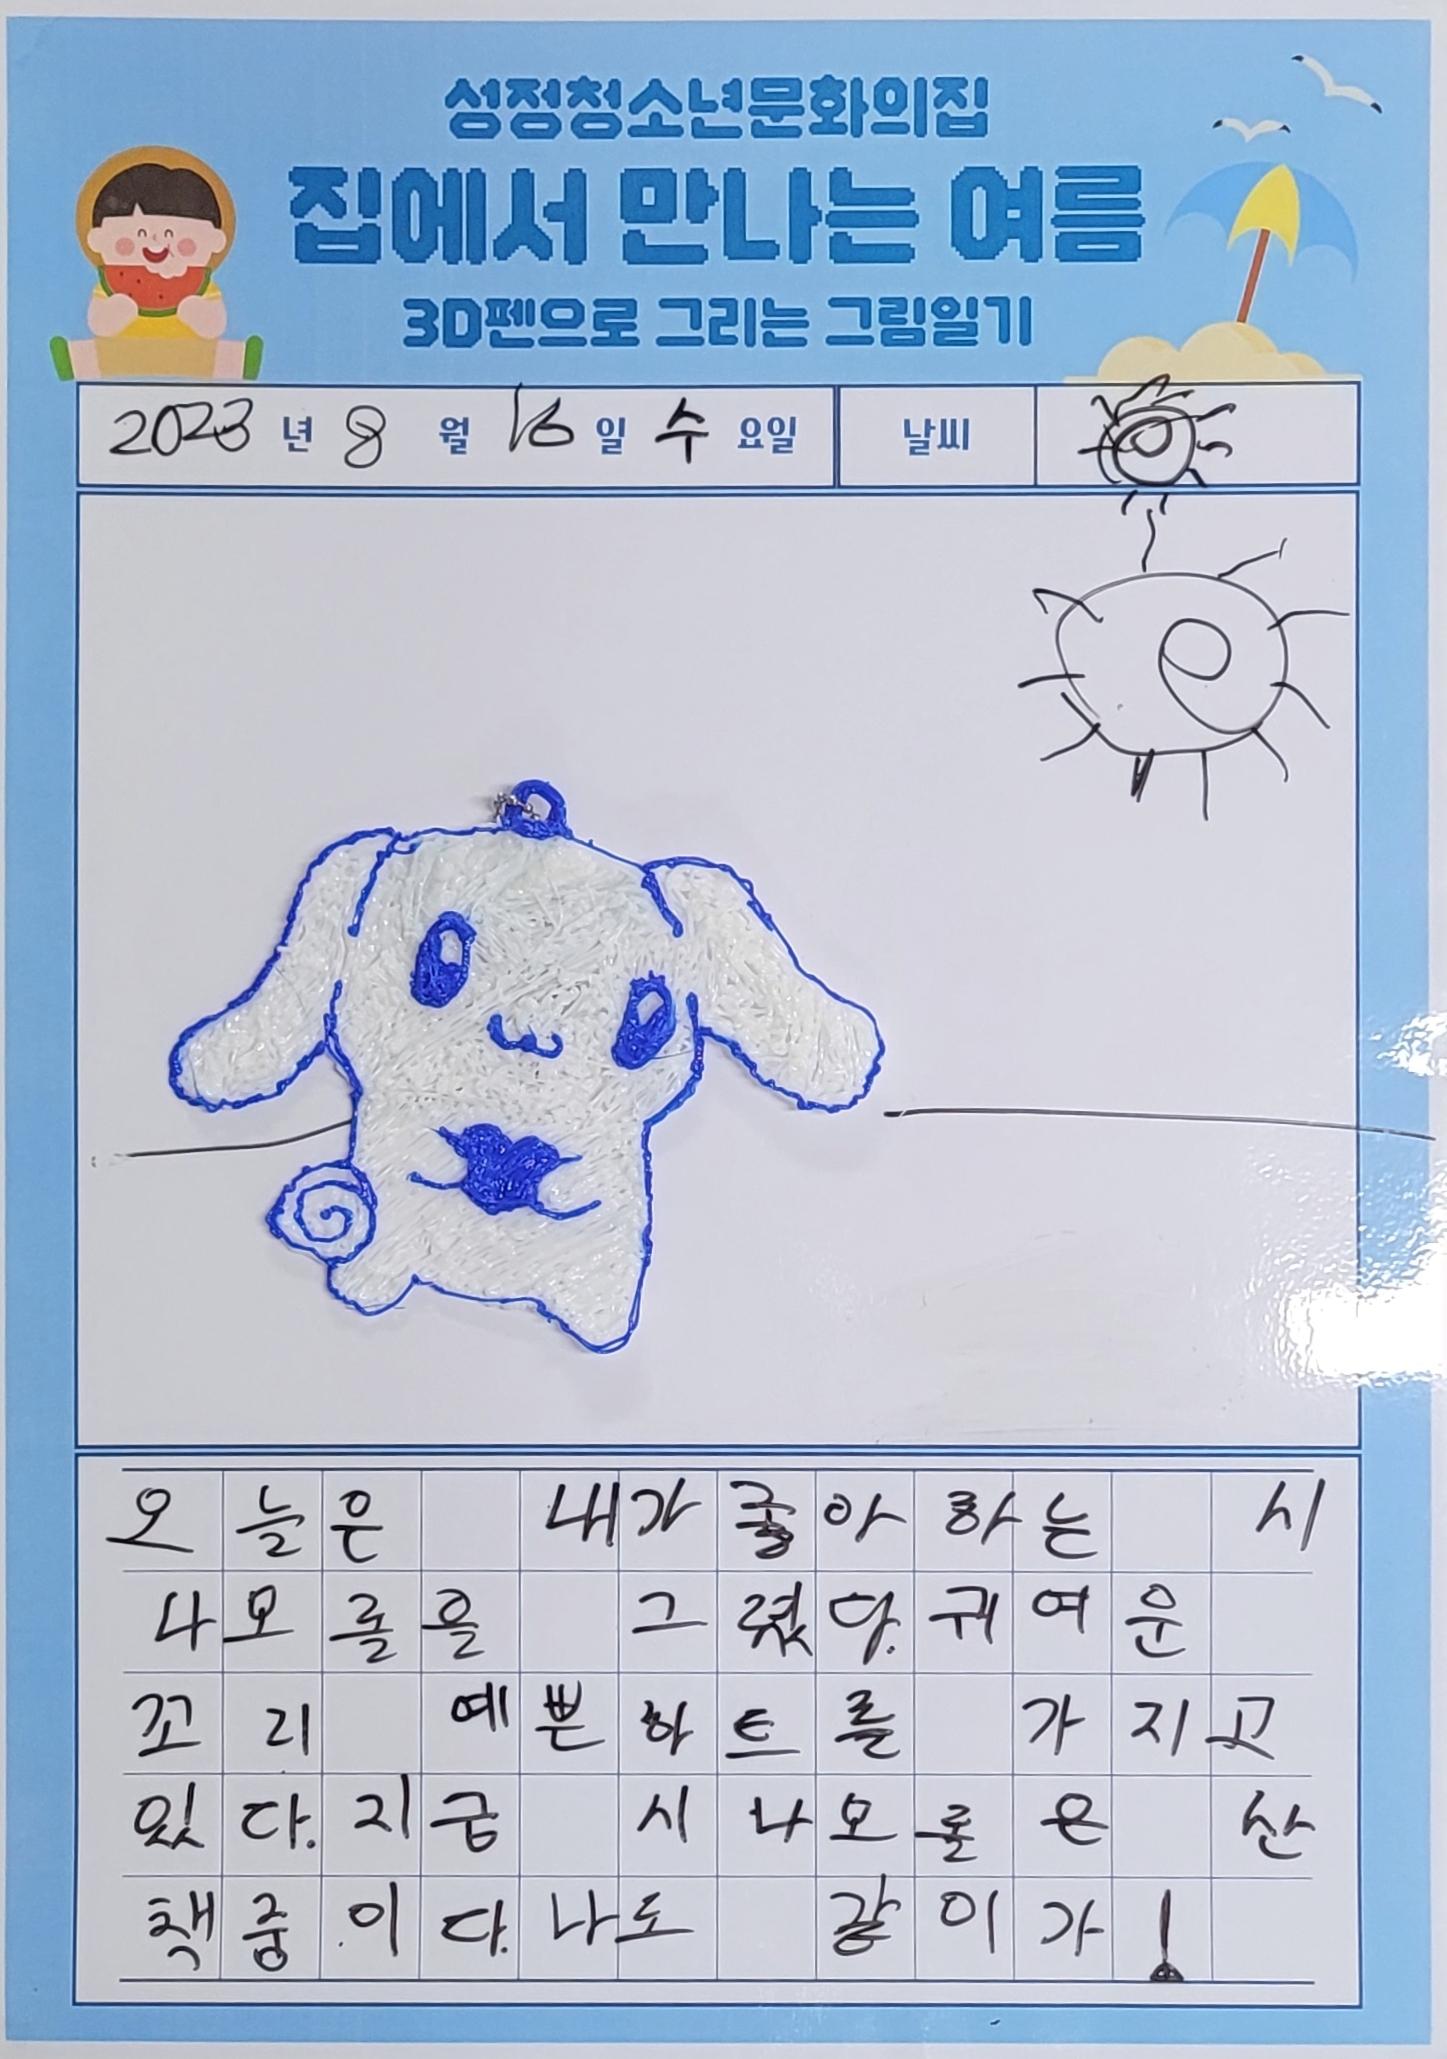 성정청소년문화의집
집에서 만나는 여름
3D펜으로 그리는 그림일기
2023 년 8 월 16 일 수 요일 날씨
오늘은 내가좋아하는 시
나모롤을 그렸다.귀여운
꼬리 예쁜하트를 가지고
있다.지금 시나모롤은 산
책중이다.나도 같이가!